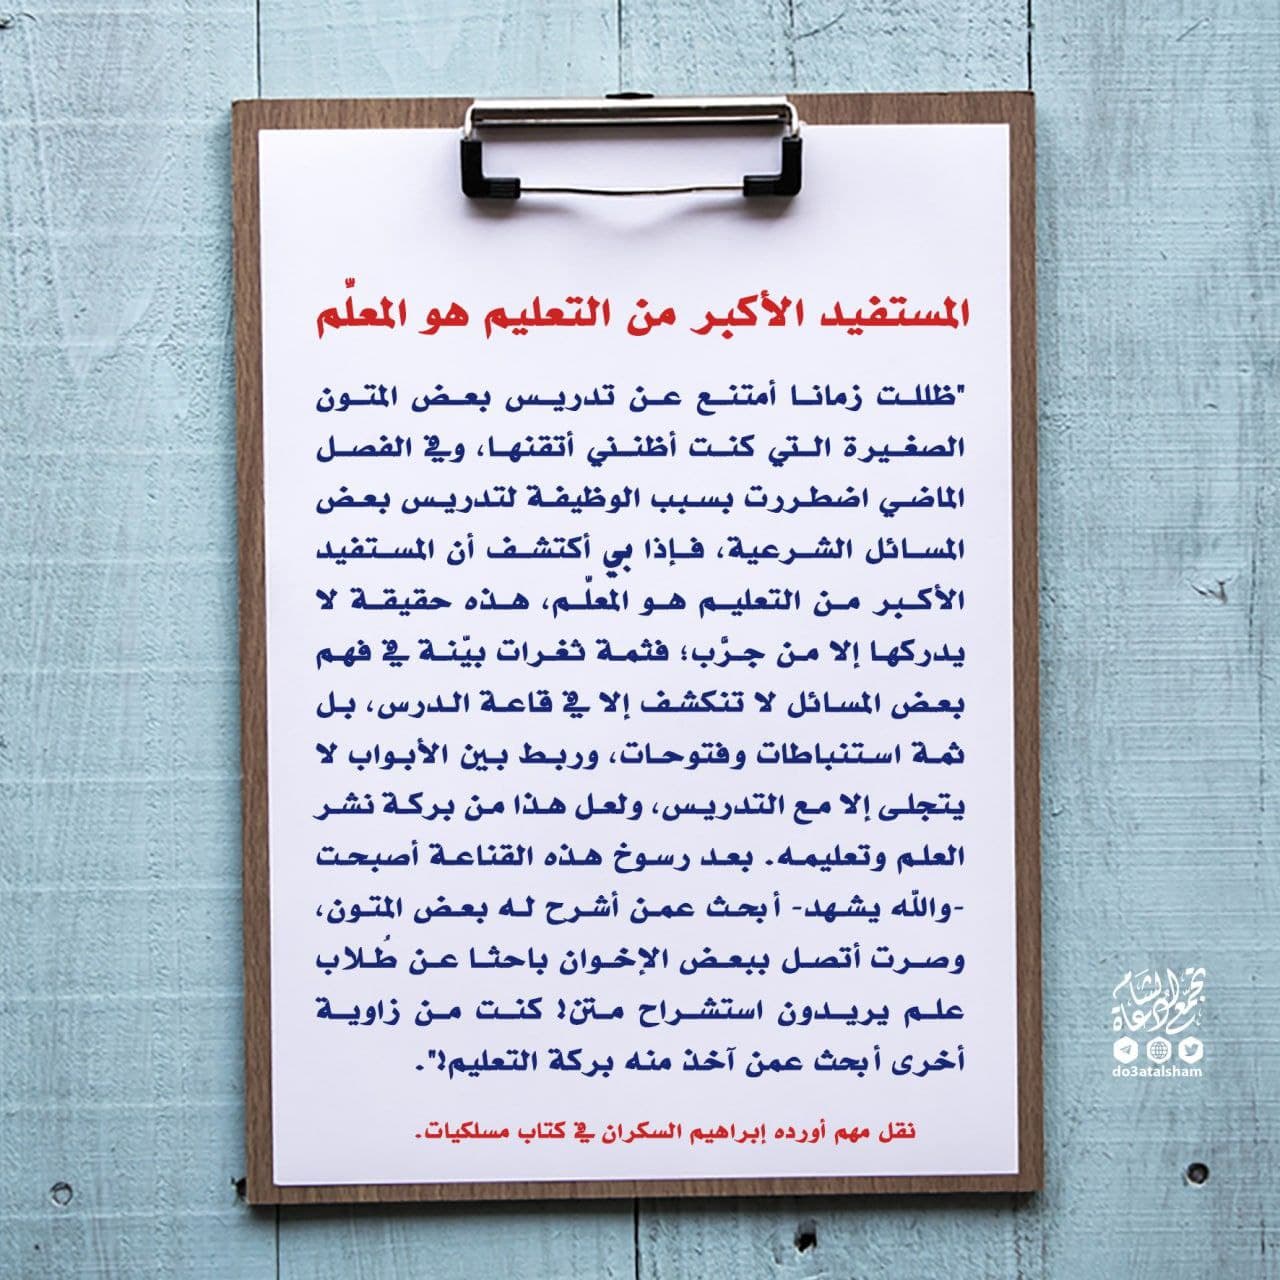 المستفيد الأكبر من التعليم هو المعلّم
"ظللت زمانا أمتنع عن تدريس بعض المتون
الصغيرة التي كنت أظنني أتقنها، وفي الفصل
الماضي اضطررت بسبب الوظيفة لتدريس بعض
المسائل الشرعية، فإذا بي أكتشف أن المستفيد
الأكبر من التعليم هو المعلّم، هذه حقيقة لا
يدركها إلا من جرَّب؛ فثمة ثغرات بيّنة في فهم
بعض المسائل لا تنكشف إلا في قاعة الدرس، بل
ثمة استنباطات وفتوحات، وربط بين الأبواب لا
يتجلى إلا مع التدريس، ولعل هذا من بركة نشر
العلم وتعليمه. بعد رسوخ هذه القناعة أصبحت
-والله يشهد- أبحث عمن أشرح له بعض المتون،
وصرت أتصل ببعض الإخوان باحثا عن طُلاب
علم يريدون استشراح متن! كنت من زاوية
أخرى أبحث عمن آخذ منه بركة التعليم!".
نقل مهم أورده إبراهيم السكران في كتاب مسلكيات.
تجمع دعاة الشام
do3atalsham